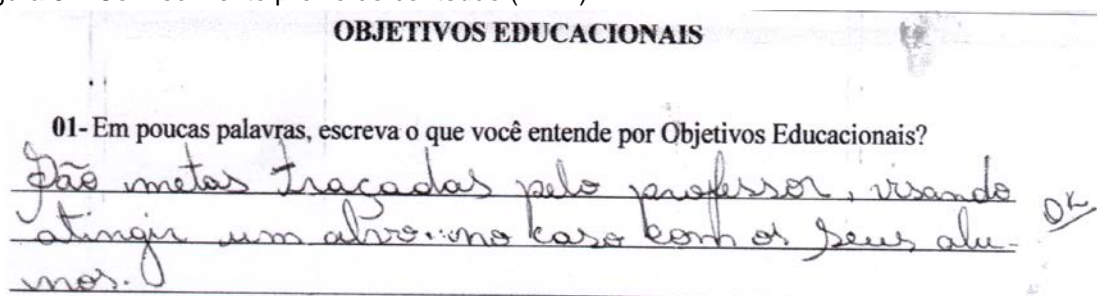 OBJETIVOS EDUCACIONAIS
01- Em poucas palavras, escreva o que você entende por Objetivos Educacionais?
São metas traçadas pelo professor, visando
atingir um alvo... no caso com os seus alu-
nos.
OK